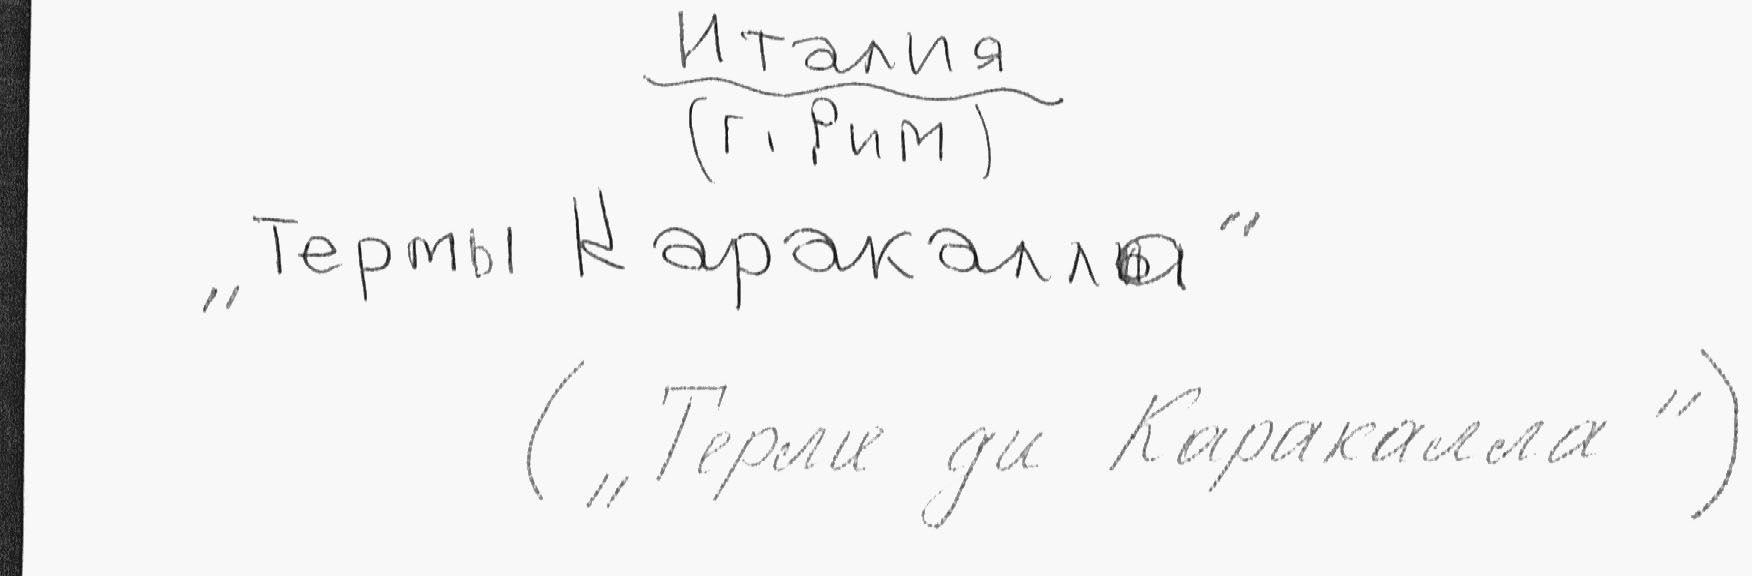 Италия
(г. Рим)
„Термы Каракаллы"
(„Терме ди Каракалла")